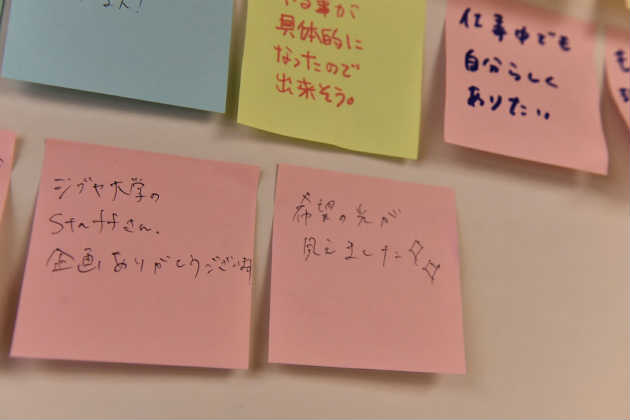 具体的に
なったので
出来そう。
仕事中でも
自分らしく
ありたい。
シブヤ大学の
Staffさん、
企画ありがとうございます
希望の光が
見えました